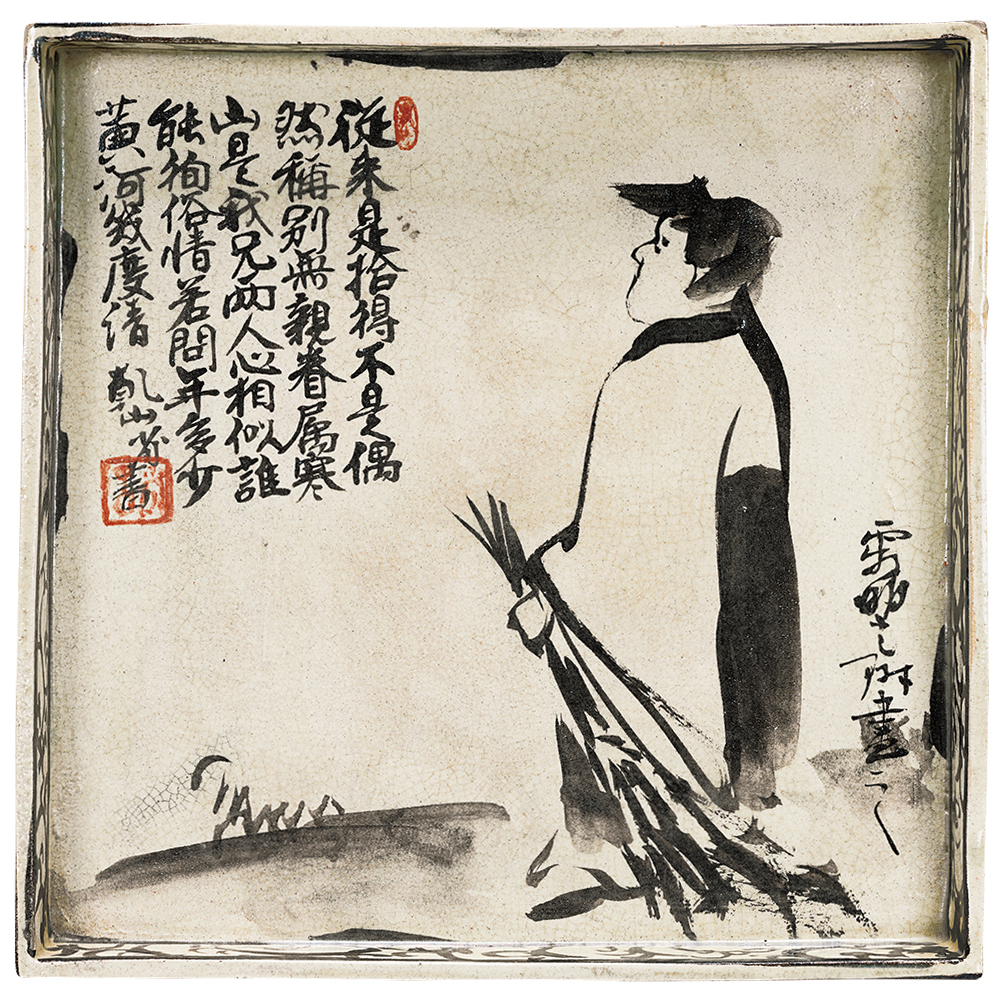 從来是拾得不是偶
然稱別無親眷属寒
山是我兄両人心相似誰
能徇俗情若問年多少
黄河幾度清 乾山省書
畫